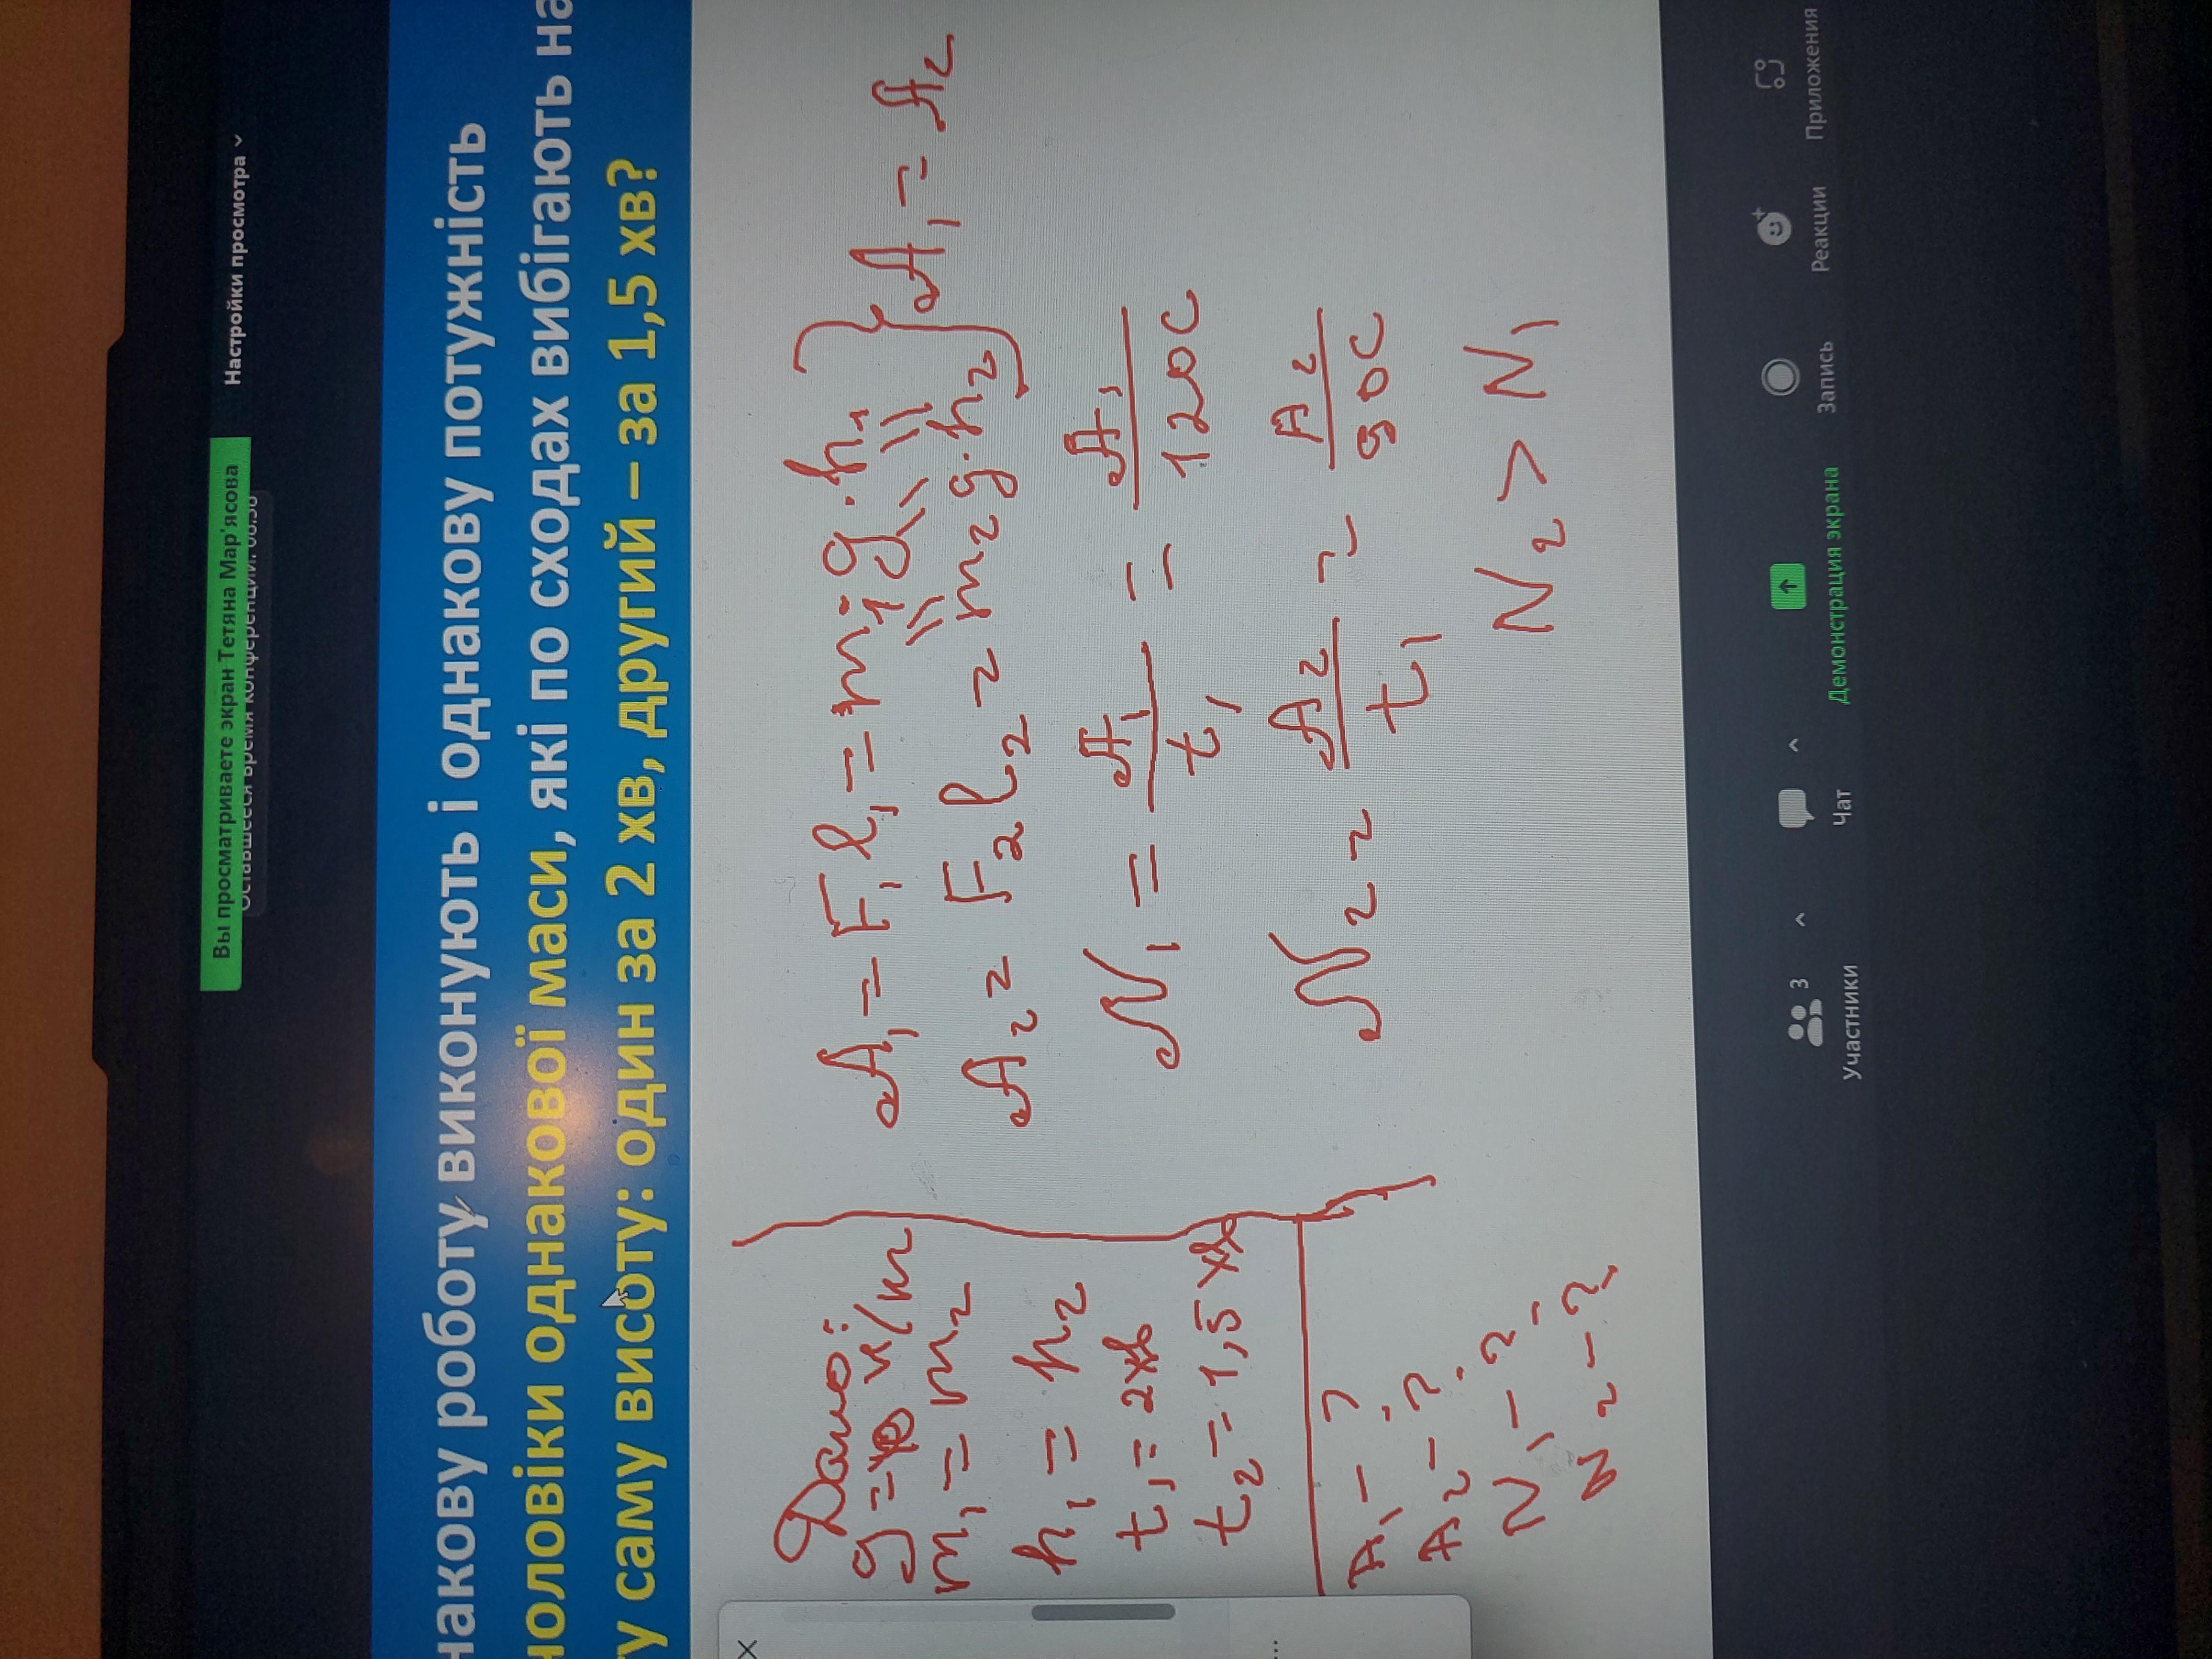 Вы просматриваете экран Тетяна Мар'ясова
Настройки просмотра
Оставшееся время конференции: 08:58
накову роботу виконують і однакову потужність
чоловіки однакової маси, які по сходах вибігають на
ту саму висоту: один за 2 хв, другий – за 1,5 хв?
Дано:
g = 10 н/м
m₁ = m₂
h₁ = h₂
t₁ = 2хв
t₂ = 1,5 хв
A₁ – ?
A₂ – ?
N₁ – ?
N₂ – ?
A₁ = F₁ l₁ = m₁ · g · h₁
A₂ = F₂ l₂ = m₂ g · h₂
} A₁ = A₂
N₁ = A₁ / t₁ = A₁ / 120с
N₂ = A₂ / t₁ = A₂ / 90с
N₂ > N₁
Участники 3
Чат
Демонстрация экрана
Запись
Реакции
Приложения